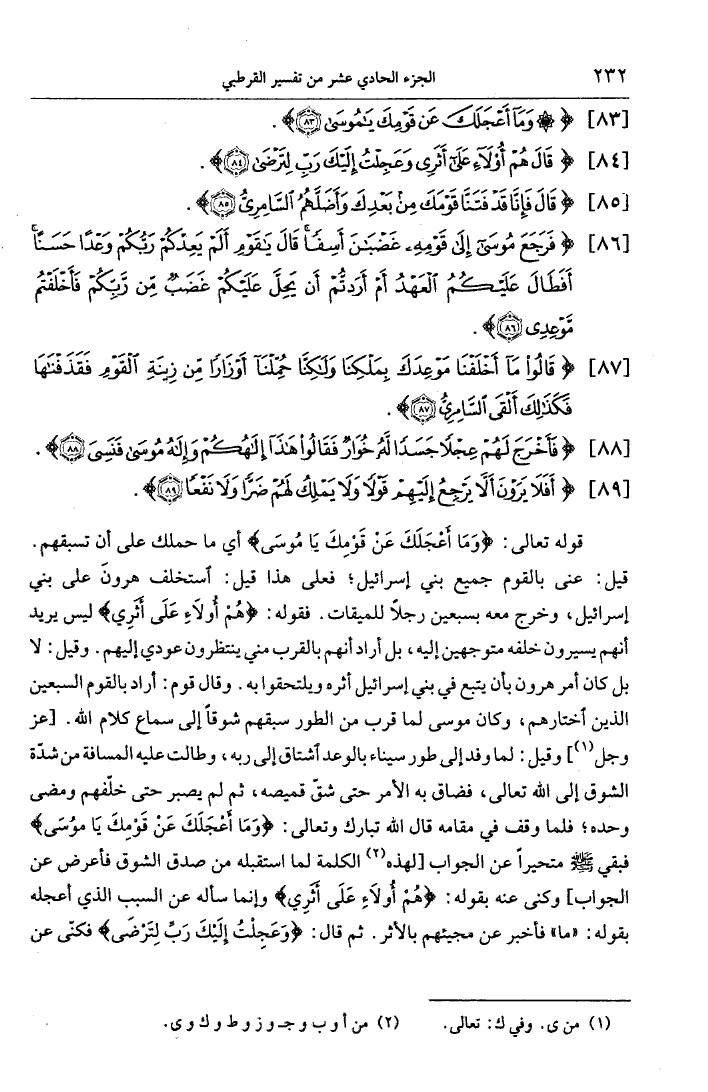 ٢٣٢ الجزء الحادي عشر من تفسير القرطبي
[٨٣] ﴿ ۞ وَمَآ أَعْجَلَكَ عَن قَوْمِكَ يَٰمُوسَىٰ ﴿٨٣﴾ ﴾ .
[٨٤] ﴿ قَالَ هُمْ أُوْلَآءِ عَلَىٰٓ أَثَرِى وَعَجِلْتُ إِلَيْكَ رَبِّ لِتَرْضَىٰ ﴿٨٤﴾ ﴾ .
[٨٥] ﴿ قَالَ فَإِنَّا قَدْ فَتَنَّا قَوْمَكَ مِنۢ بَعْدِكَ وَأَضَلَّهُمُ ٱلسَّامِرِىُّ ﴿٨٥﴾ ﴾ .
[٨٦] ﴿ فَرَجَعَ مُوسَىٰٓ إِلَىٰ قَوْمِهِۦ غَضْبَٰنَ أَسِفًا ۚ قَالَ يَٰقَوْمِ أَلَمْ يَعِدْكُمْ رَبُّكُمْ وَعْدًا حَسَنًا ۚ
أَفَطَالَ عَلَيْكُمُ ٱلْعَهْدُ أَمْ أَرَدتُّمْ أَن يَحِلَّ عَلَيْكُمْ غَضَبٌ مِّن رَّبِّكُمْ فَأَخْلَفْتُم
مَّوْعِدِى ﴿٨٦﴾ ﴾ .
[٨٧] ﴿ قَالُواْ مَآ أَخْلَفْنَا مَوْعِدَكَ بِمَلْكِنَا وَلَٰكِنَّا حُمِّلْنَآ أَوْزَارًا مِّن زِينَةِ ٱلْقَوْمِ فَقَذَفْنَٰهَا
فَكَذَٰلِكَ أَلْقَى ٱلسَّامِرِىُّ ﴿٨٧﴾ ﴾ .
[٨٨] ﴿ فَأَخْرَجَ لَهُمْ عِجْلًا جَسَدًا لَّهُۥ خُوَارٌ فَقَالُواْ هَٰذَآ إِلَٰهُكُمْ وَإِلَٰهُ مُوسَىٰ فَنَسِىَ ﴿٨٨﴾ ﴾ .
[٨٩] ﴿ أَفَلَا يَرَوْنَ أَلَّا يَرْجِعُ إِلَيْهِمْ قَوْلًا وَلَا يَمْلِكُ لَهُمْ ضَرًّا وَلَا نَفْعًا ﴿٨٩﴾ ﴾ .
قوله تعالى: ﴿وَمَا أَعْجَلَكَ عَنْ قَوْمِكَ يَا مُوسَى﴾ أي ما حملك على أن تسبقهم.
قيل: عنى بالقوم جميع بني إسرائيل؛ فعلى هذا قيل: ٱستخلف هرونَ على بني
إسرائيل، وخرج معه بسبعين رجلاً للميقات. فقوله: ﴿هُمْ أُولَاءِ عَلَى أَثَرِي﴾ ليس يريد
أنهم يسيرون خلفه متوجهين إليه، بل أراد أنهم بالقرب مني ينتظرون عودي إليهم. وقيل: لا
بل كان أمر هرون بأن يتبع في بني إسرائيل أثره ويلتحقوا به. وقال قوم: أراد بالقوم السبعين
الذين ٱختارهم، وكان موسى لما قرب من الطور سبقهم شوقاً إلى سماع كلام الله. [عز
وجل(١)] وقيل: لما وفد إلى طور سيناء بالوعد ٱشتاق إلى ربه، وطالت عليه المسافة من شدّة
الشوق إلى الله تعالى، فضاق به الأمر حتى شقّ قميصه، ثم لم يصبر حتى خلّفهم ومضى
وحده؛ فلما وقف في مقامه قال الله تبارك وتعالى: ﴿وَمَا أَعْجَلَكَ عَنْ قَوْمِكَ يَا مُوسَى﴾
فبقي ﷺ متحيراً عن الجواب [لهذه(٢) الكلمة لما استقبله من صدق الشوق فأعرض عن
الجواب] وكنى عنه بقوله: ﴿هُمْ أُولَاءِ عَلَى أَثَرِي﴾ وإنما سأله عن السبب الذي أعجله
بقوله: «ما» فأخبر عن مجيئهم بالأثر. ثم قال: ﴿وَعَجِلْتُ إِلَيْكَ رَبِّ لِتَرْضَى﴾ فكنّى عن
(١) من ى. وفي ك: تعالى. (٢) من أ و ب و جـ و ز و ط و ك و ى.